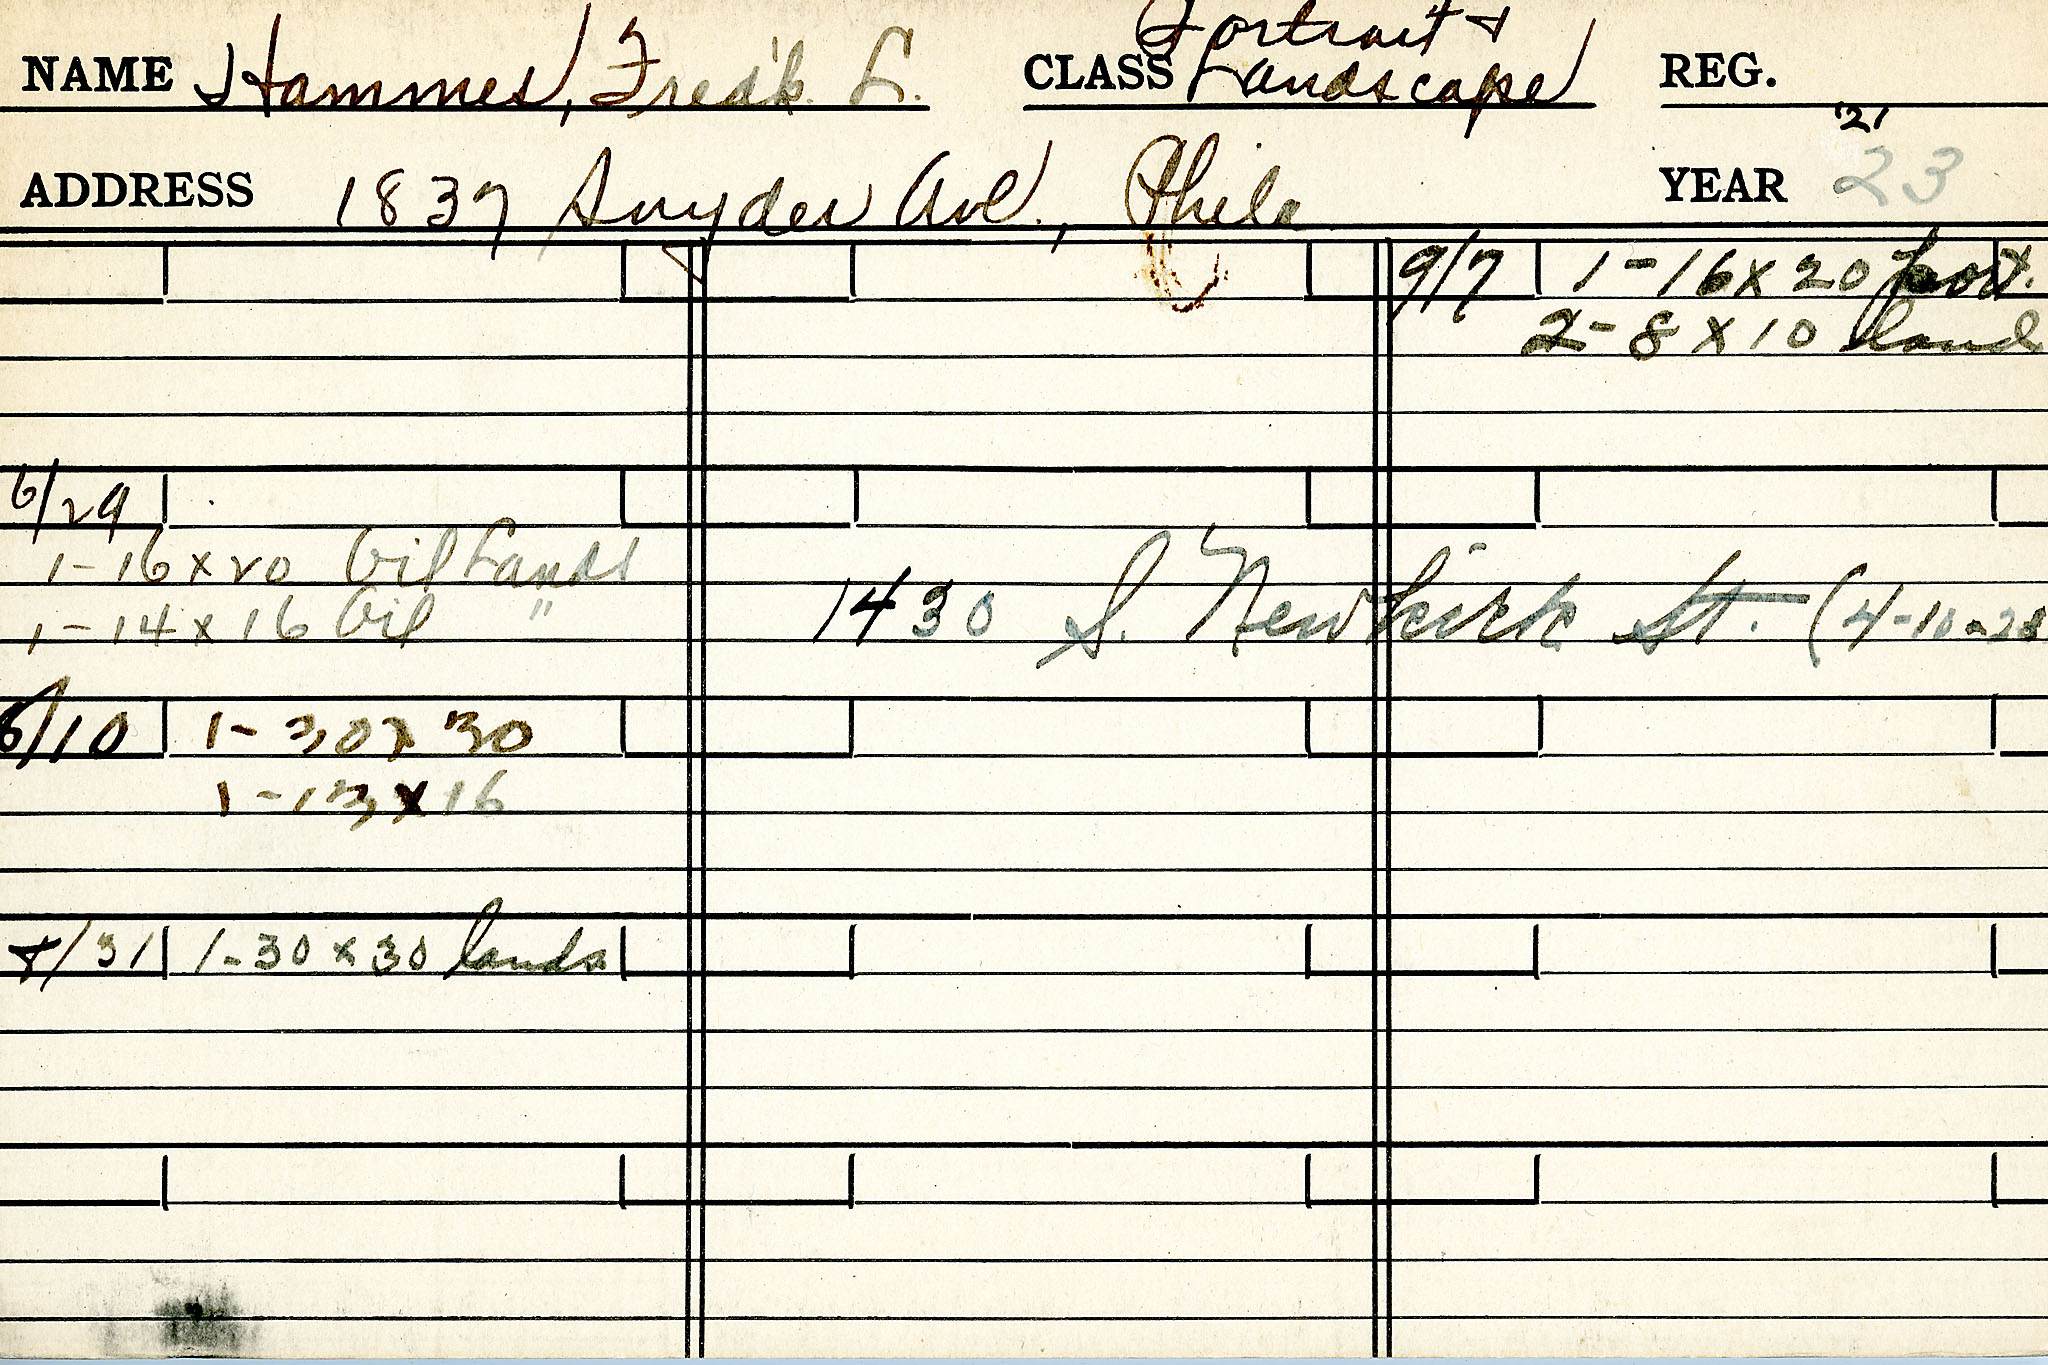 NAME Hammes, Fred'k. L. CLASS Portrait & Landscape REG.
ADDRESS 1837 Snyder Ave., Phila YEAR '21 23
9/7 1-16x20 port.
2-8x10 land
6/29
1-16x20 Oil Lands
1-14x16 Oil "
1430 S. Newkirk St. (4-10-23
8/10 1-30x30
1-13x16
8/31 1-30x30 lands